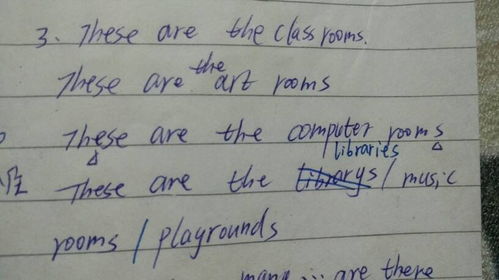 3. These are the classrooms.
These are the art rooms
These are the computer rooms
These are the libraries / music
rooms / playgrounds
many ... are there